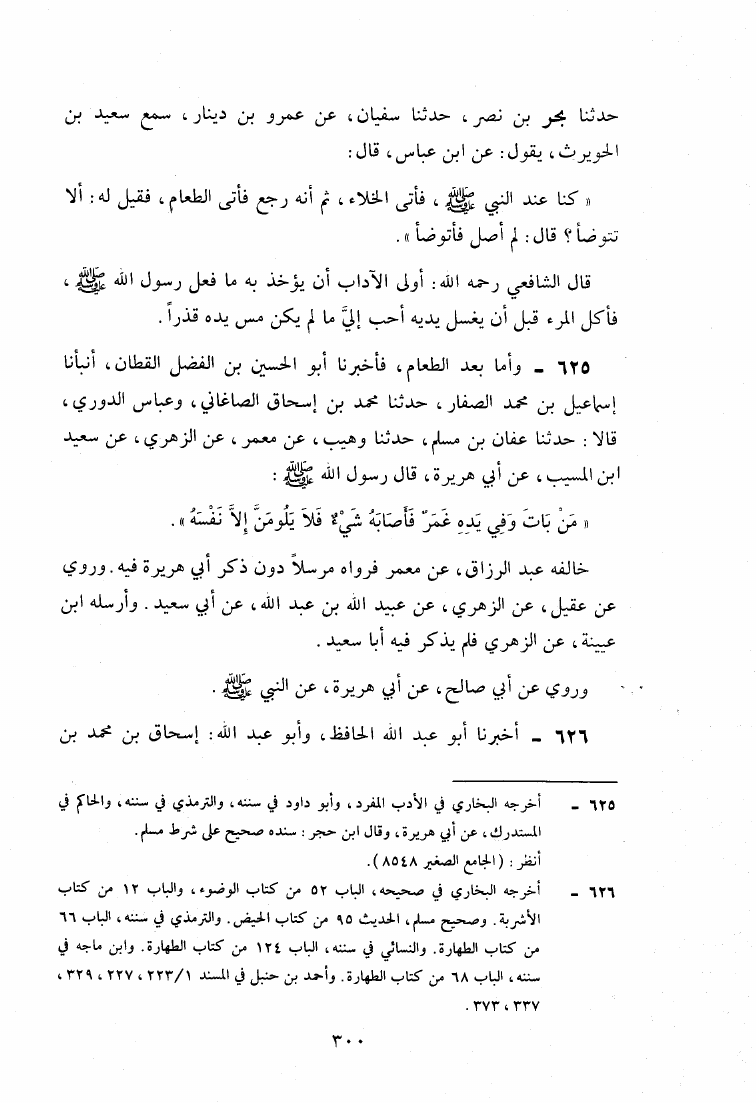 حدثنا بحر بن نصر ، حدثنا سفيان، عن عمرو بن دينار ، سمع سعيد بن
الحويرث، يقول: عن ابن عباس، قال:
« كنا عند النبي ﷺ ، فأتى الخلاء، ثم أنه رجع فأتى الطعام، فقيل له: ألا
تتوضأ؟ قال: لم أصل فأتوضأ ».
قال الشافعي رحمه الله: أولى الآداب أن يؤخذ به ما فعل رسول الله ﷺ ،
فأكل المرء قبل أن يغسل يديه أحب إليَّ ما لم يكن مس يده قذراً.
٦٢٥ ـ وأما بعد الطعام، فأخبرنا أبو الحسين بن الفضل القطان، أنبأنا
إسماعيل بن محمد الصفار، حدثنا محمد بن إسحاق الصاغاني، وعباس الدوري،
قالا: حدثنا عفان بن مسلم، حدثنا وهيب، عن معمر، عن الزهري، عن سعيد
ابن المسيب، عن أبي هريرة، قال رسول الله ﷺ :
« مَنْ بَاتَ وَفِي يَدِهِ غَمَرٌ فَأَصَابَهُ شَيْءٌ فَلاَ يَلُومَنَّ إلاَّ نَفْسَهُ ».
خالفه عبد الرزاق، عن معمر فرواه مرسلاً دون ذكر أبي هريرة فيه. وروي
عن عقيل، عن الزهري، عن عبيد الله بن عبد الله، عن أبي سعيد. وأرسله ابن
عيينة، عن الزهري فلم يذكر فيه أبا سعيد.
وروي عن أبي صالح، عن أبي هريرة، عن النبي ﷺ .
٦٢٦ ـ أخبرنا أبو عبد الله الحافظ، وأبو عبد الله: إسحاق بن محمد بن
٦٢٥ ـ أخرجه البخاري في الأدب المفرد، وأبو داود في سننه، والترمذي في سننه، والحاكم في
المستدرك، عن أبي هريرة، وقال ابن حجر: سنده صحيح على شرط مسلم.
أنظر: (الجامع الصغير ٨٥٤٨).
٦٢٦ ـ أخرجه البخاري في صحيحه، الباب ٥٢ من كتاب الوضوء، والباب ١٢ من كتاب
الأشربة. وصحيح مسلم، الحديث ٩٥ من كتاب الحيض. والترمذي في سننه، الباب ٦٦
من كتاب الطهارة. والنسائي في سننه، الباب ١٢٤ من كتاب الطهارة. وابن ماجه في
سننه، الباب ٦٨ من كتاب الطهارة. وأحمد بن حنبل في المسند ١/ ٢٢٣، ٢٢٧، ٣٢٩،
٣٣٧، ٣٧٣.
٣٠٠